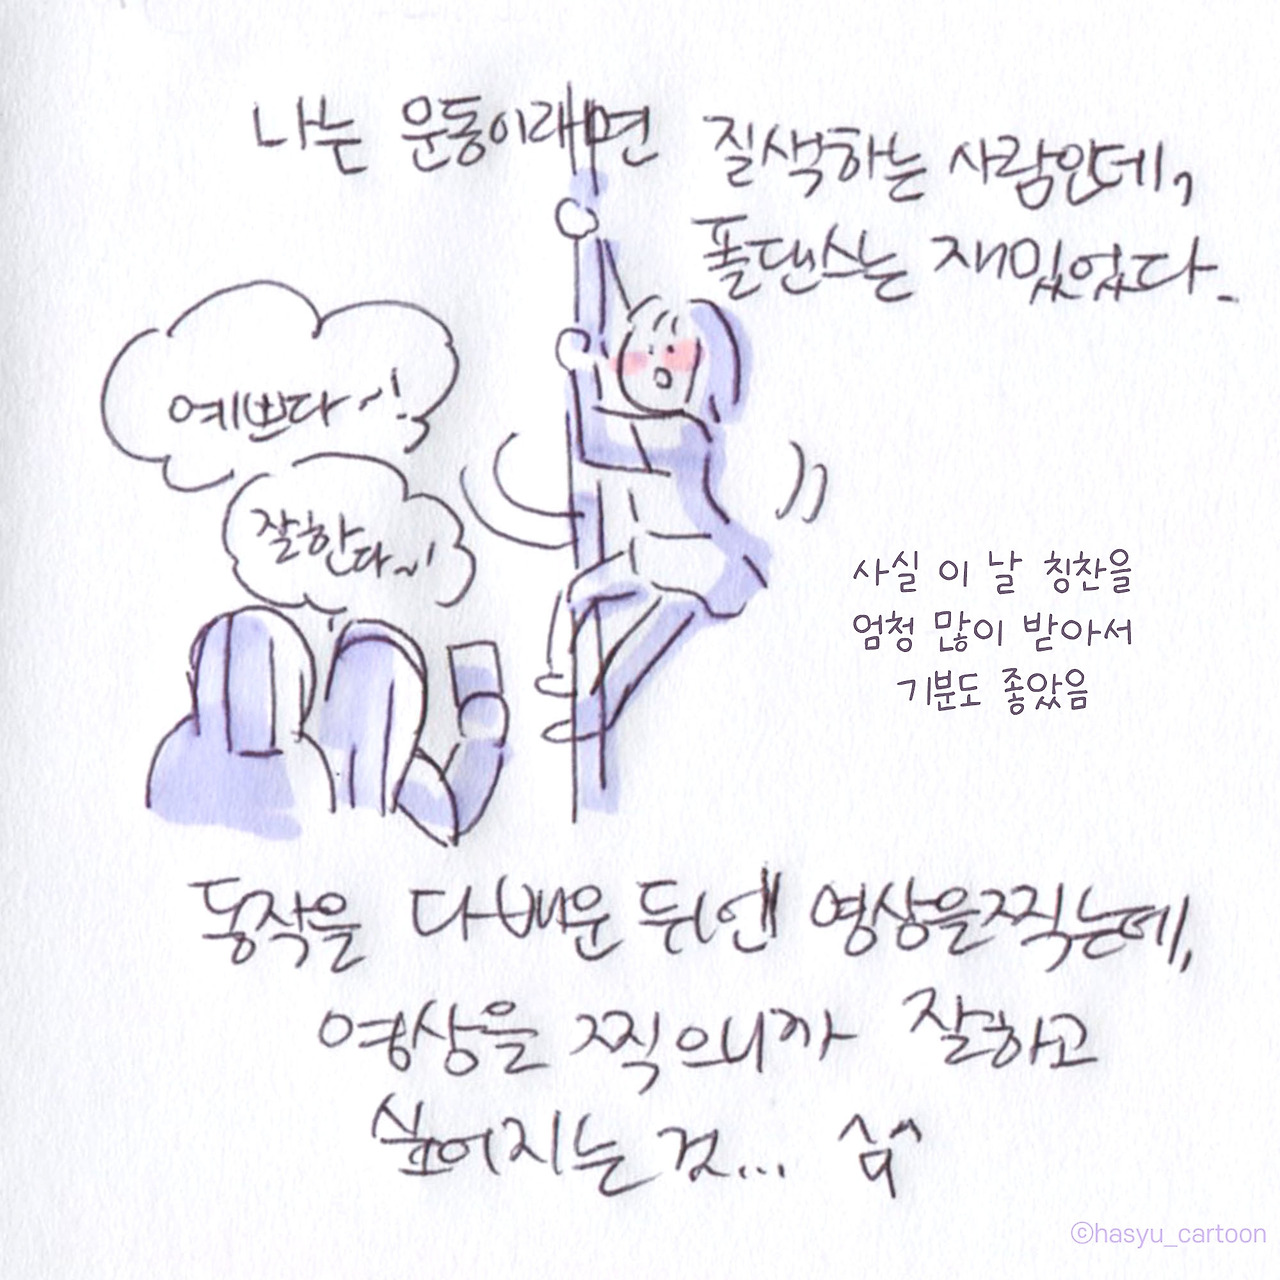 나는 운동이래면 질색하는 사람인데,
폴댄스는 재밌었다.
예쁘다~!
잘한다~!
사실 이 날 칭찬을
엄청 많이 받아서
기분도 좋았음
동작을 다 배운 뒤엔 영상을 찍는데,
영상을 찍으니까 잘하고
싶어지는 것... ^_^
©hasyu_cartoon